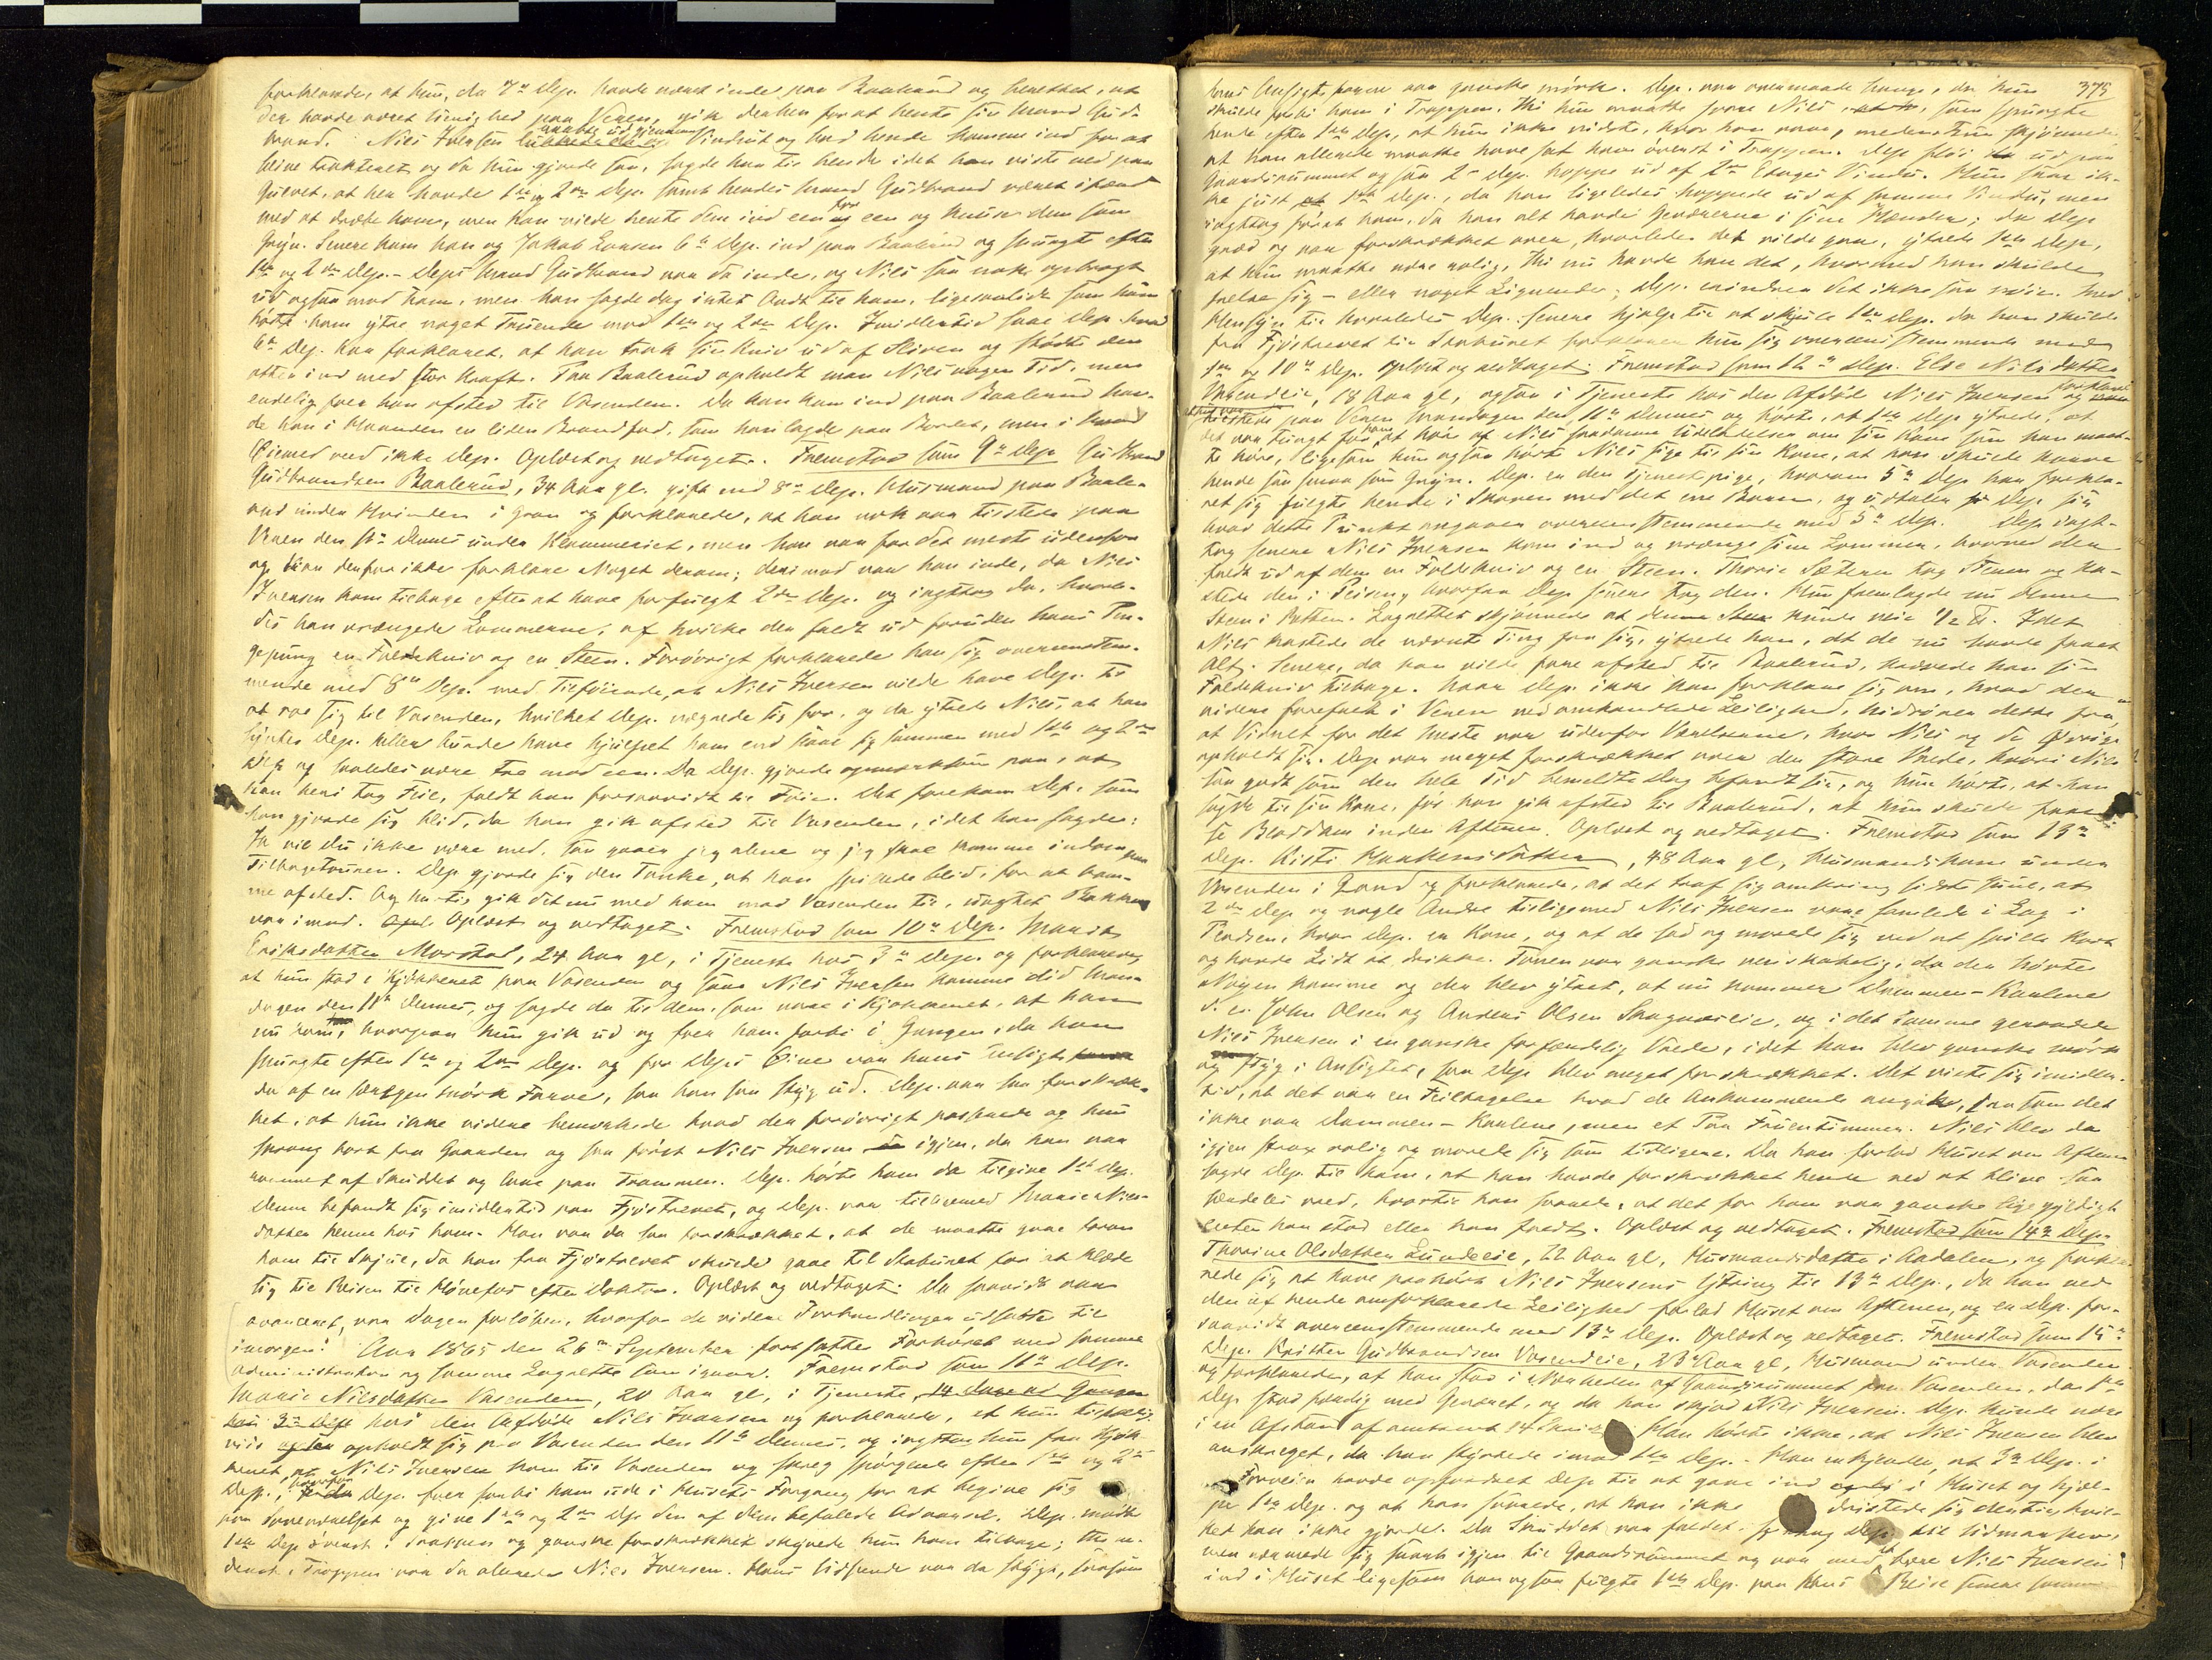 forklarede, at hun, da 7de Dep. havde været inde paa Baalerud og berettet, at
der havde været Uenighed paa Veren, gik derhen for at hente sin Mand Gud-
brand. Nils Iversen raabte ud gjennem Vinduet og bad hende komme ind for at
blive trakteret, og da hun gjorde saa, sagde han til hende idet han viste ned paa
Gulvet, at her havde 1ste og 2den Dep. samt hendes Mand Gudbrand været ifærd
med at dræbe ham, men han vilde hente dem ind een for een og knuse dem som
Gryn. Senere kom han og Jakob Larsen 6te Dep. ind paa Baalerud og spurgte efter
1ste og 2den Dep. – Deps Mand Gudbrand var da inde, og Nils saa nok opbragt
ud ogsaa mod ham, men han sagde dog intet Ondt til ham, ligesaalidt som hun
hørte ham ytre noget Truende mod 1ste og 2den Dep. Imidlertid saae Dep. hvad
6te Dep. har forklaret, at han trak sin Kniv ud af Sliren og stødte den
atter ind med stor Kraft. Paa Baalerud opholdt man Nils nogen Tid, men
endelig foer han afsted til Vasenden. Da han kom ind paa Baalerud hav-
de han i Haanden en liden Brandfod, som han lagde paa Bordet, men i hvad
Øiemed veed ikke Dep. Oplæst og vedtaget. Fremstod som 9de Dep. Gudbrand
Gudbrandsen Baalerud, 34 Aar gl. gift med 8de Dep. Husmand paa Baale-
rud under Hvinden i Gran og forklarede, at han nok var tilstede paa
Veren den 11te dennes under Klammeriet, men han var for det meste udenfor
og kan derfor ikke forklare Noget derom; derimod var han inde, da Nils
Iversen kom tilbage efter at have forfulgt 2den Dep. og iagttog da, hvorle-
des han vrængede Lommerne, af hvilke der faldt ud foruden hans Pen-
gepung en Foldekniv og en Steen. Forøvrigt forklarede han sig overensstem-
mende med 8de Dep. med Tilføiende, at Nils Iversen vilde have Dep. til
at roe sig til Vasenden, hvilket Dep. vægrede sig for, og da ytrede Nils, at han
syntes Dep. heller burde have hjulpet ham end slaae sig sammen med 1ste og 2den
Dep. og saaledes være tre mod een. Da Dep. gjorde opmærksom paa, at
han heri tog Feil, faldt han forsaavidt til Føie. Det forekom Dep. som
han gjorde sig blid, da han gik afsted til Vasenden, idet han sagde:
Ja vil du ikke være med, saa gaaer jeg alene og jeg skal komme indom paa
Tilbageturen. Dep. gjorde sig den Tanke, at han spillede blid, for at kom-
me afsted. Og hurtig gik det nu med ham mod Vasenden til, uagtet Bakken
var imod. Oplæst og vedtaget. Fremstod som 10de Dep. Marit
Eriksdatter Morstad, 24 Aar gl, i Tjeneste hos 3die Dep. og forklarede,
at hun stod i Kjøkkenet paa Vasenden og saae Nils Iversen komme did Man-
dagen den 11te dennes, og sagde da til dem, som vare i Kjøkkenet, at han
nu kom, hvorpaa hun gik ud og foer ham forbi i Gangen, da han
spurgte efter 1ste og 2den Dep. og for Deps Øine var hans Ansigt
da af en saa mørk Farve, saa han saa styg ud. Dep. var saa forskræk-
ket, at hun ikke videre bemærkede hvad der forøvrigt passerede og hun
sprang bort fra Gaarden og saa først Nils Iversen igjen, da han var
rammet af Skuddet og laae paa Trammen. Dep. hørte ham da tilgive 1ste Dep.
Denne befandt sig imidlertid paa Fjøstrevet, og Dep. var tilligemed Marie Nils-
datter henne hos ham. Han var da saa forskrækket, at de maatte gaae foran
ham til Skjul, da han fra Fjøstrevet skulde gaae til Stabburet for at klæde
sig til Reisen til Hønefos efter Doktor. Oplæst og vedtaget. Da saavidt var
avanceret, var Dagen forløben, hvorfor de videre Forhandlinger udsattes til
imorgen! Aar 1865 den 26de September fortsattes Forhøret med samme
Administrator og samme Lagrette som igaar. Fremstod som 11te Dep.
Marie Nilsdatter Vasenden, 20 Aar gl, i Tjeneste
hos den Afdøde Nils Iversen og forklarede, at hun tilfældig-
viis opholdt sig paa Vasenden den 11te dennes, og iagttog hun fra Kjøk-
kenet, at Nils Iversen kom til Vasenden og skreg spørgende efter 1ste og 2den
Dep., hvorpaa Dep. foer forbi ham ude i Husets Forgang for at begive sig
op paa Soveværelset og give 1ste og 2den Dep. den af dem befalede Advarsel. Dep. mødte
1ste Dep. øverst i Trappen og ganske forskrækket skyvede hun ham tilbage; thi ne-
derst i Trappen var da allerede Nils Iversen. Hans Udseende var da stygt, saasom
375
hans Ansigts farve var ganske mørk. Dep. var overmaade bange, da hun
skulde forbi ham i Trappen. Thi hun maatte svare Nils, som spurgte
hende efter 1ste Dep., at hun ikke vidste, hvor han var, medens hun skjønnede
at han allerede maatte have seet ham øverst i Trappen. Dep. fløi ud paa
Gaardsrummet og saa 2den Dep. hoppe ud af 2den Etages Vindu. Hun saae ik-
ke just 1ste Dep., da han ligeledes hoppede ud af samme Vindu, men
iagttog først ham, da han alt havde Geværerne i sine Hænder; da Dep.
græd og var forskrækket over, hvorledes det vilde gaae, ytrede 1ste Dep,
at hun maatte være rolig, thi nu havde han det, hvormed han skulde
frelse sig – eller noget Lignende; Dep. erindrer det ikke saa nøie. Med
Hensyn til hvorledes Dep. senere hjalp til at skjule 1ste Dep. da han skulde
fra Fjøstrevet til Stabburet forklarer hun sig overensstemmende med
1ste og 10de Dep. Oplæst og vedtaget. Fremstod som 12te Dep. Else Nilsdatter
Vasendeie, 18 Aar gl, ogsaa i Tjeneste hos den Afdøde Nils Iversen og forklarede
at hun var tilstede paa Veren Mandagen den 11te dennes og hørte, at 1ste Dep. ytrede, at
det var tungt for ham at høre af Nils saadanne Udladelser om sin Kone som han maat-
te høre, ligesom hun ogsaa hørte Nils sige til sin Kone, at han skulde knuse
hende saa smaa som Gryn. Dep. er den Tjenestepige, hvorom 5te Dep. har forkla-
ret sig fulgte hende i Skoven med det ene Barn, og udtaler Dep. sig
hvad dette Punkt angaaer overensstemmende med 5te Dep. Dep. iagt-
tog senere Nils Iversen kom ind og vrænge sine Lommer, hvorved der
faldt ud af dem en Foldekniv og en Steen. Thorie Sæteren tog Stenen og ka-
stede den i Peisen, hvorfra Dep. senere tog den. Hun fremlagde nu denne
Steen i Retten. Lagrettet skjønnede at denne Steen kunde veie 1/2 ℔. Idet
Nils kastede de nævnte Ting fra sig, ytrede han, at de nu havde faaet
Alt. Senere, da han vilde fare afsted til Baalerud, krævede han sin
Foldekniv tilbage. Naar Dep. ikke kan forklare sig om, hvad der
videre forefaldt i Veren ved omhandlede Leilighed, hidrører dette fra,
at Vidnet for det meste var udenfor Værelserne, hvor Nils og de Øvrige
opholdt sig. Dep. var meget forskrækket over den store Vrede, hvori Nils
saa godt som den hele Tid bemeldte Dag befandt sig, og hun hørte, at han
sagde til sin Kone, før han gik afsted til Baalerud, at hun skulde faae
se Bloddam inden Aftenen. Oplæst og vedtaget. Fremstod som 13de
Dep. Kisti Haakensdatter, 48 Aar gl, Husmandskone under
Vasenden i Land og forklarede, at det traf sig omkring sidste Juul, at
2den Dep. og nogle Andre tilligemed Nils Iversen vare samlede i Lag i
Pladsen, hvor Dep. er Kone, og at de sad og morede sig ved at spille Kort
og havde Lidt at drikke. Tonen var ganske venskabelig; da der hørtes
Nogen komme og der blev ytret, at nu kommer Dammen-Karlene
d. e. John Olsen og Anders Olsen Skognæseie, og i det Samme geraadede
Nils Iversen i en ganske forfærdelig Vrede, idet han blev ganske mørk
og styg i Ansigtet, saa Dep. blev meget forskrækket. Det viste sig imidler-
tid, at det var en Feiltagelse hvad de Ankommende angik, saasom det
ikke var Dammen-Karlene, men et Par Fruentimmer. Nils blev da
igjen strax rolig og morede sig som tidligere. Da han forlod Huset om Aftenen
sagde Dep. til ham, at han havde forskrækket hende ved at blive saa
særdeles vred, hvortil han svarede, at det for ham var ganske lige gyldigt
enten han stod eller han faldt. Oplæst og vedtaget. Fremstod som 14de Dep.
Thorine Olsdatter Lundeeie, 22 Aar gl, Husmandsdatter i Aadalen, og forkla-
rede sig at have paahørt Nils Iversens Ytring til 13de Dep., da han ved
den af hende omforklarede Leilighed forlod Huset om Aftenen, og er Dep. for-
saavidt overensstemmende med 13de Dep. Oplæst og vedtaget. Fremstod som 15de
Dep. Kristen Gudbrandsen Vasendeie, 23 Aar gl, Husmand under Vasenden
og forklarede, at han stod i Nærheden af Gaardsrummet paa Vasenden, da 1ste
Dep. stod færdig med Geværet, og da han skjød Nils Iversen. Dep. kunde være
i en Afstand af omtrent 14 Skridt. Han hørte ikke, at Nils Iversen blev
anskreget, da han styrtede imod 1ste Dep. – Han erkjender, at 3die Dep. i
Forveien havde opfordret Dep. til at gaae ind i Huset og hjæl-
pe 1ste Dep. og at han svarede, at han ikke dristede sig dertil, hvil-
ket han ikke gjorde. Da Skuddet var faldet, sprang Dep. til Udmarken,
men nærmede sig snart igjen til Gaardsrummet og var med at bære Nils Iversen
ind i Huset ligesom han ogsaa fulgte 1ste Dep. paa hans Reise senere samme